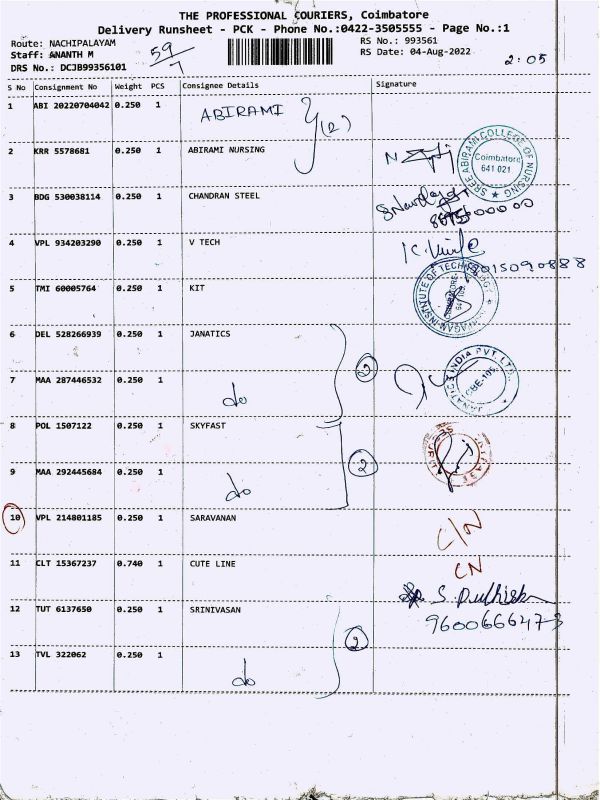 THE PROFESSIONAL COURIERS, Coimbatore
Delivery Runsheet - PCK - Phone No.:0422-3505555 - Page No.:1
Route: NACHIPALAYAM
RS No.: 993561
Staff: ANANTH M
59
RS Date: 04-Aug-2022
2:05
DRS No.: DCJB99356101
S No Consignment No Weight PCS Consignee Details Signature
1 ABI 20220704042 0.250 1 ABIRAMI (2)
2 KRR 5578681 0.250 1 ABIRAMI NURSING
SREE ABIRAMI COLLEGE OF NURSING
Coimbatore
641 021
3 BDG 530038114 0.250 1 CHANDRAN STEEL
4 VPL 934203290 0.250 1 V TECH
8015090888
5 TMI 60005764 0.250 1 KIT
INSTITUTE OF TECHNOLOGY
6 DEL 528266939 0.250 1 JANATICS
7 MAA 287446532 0.250 1 do 2
JANATICS INDIA PVT. LTD.
CBE-105.
8 POL 1507122 0.250 1 SKYFAST
9 MAA 292445684 0.250 1 do 2
10 VPL 214801185 0.250 1 SARAVANAN C/N
11 CLT 15367237 0.740 1 CUTE LINE CN
12 TUT 6137650 0.250 1 SRINIVASAN 2
9600666473
13 TVL 322062 0.250 1 do